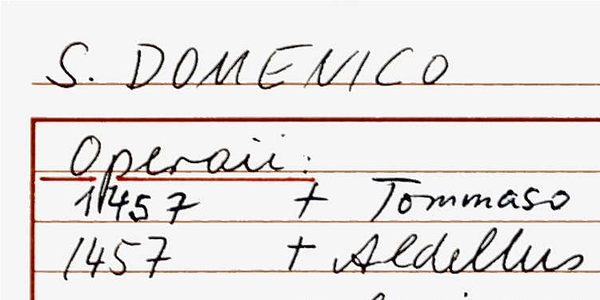 S. DOMENICO
Operaii:
1457 + Tommaso
1457 + Aldellus